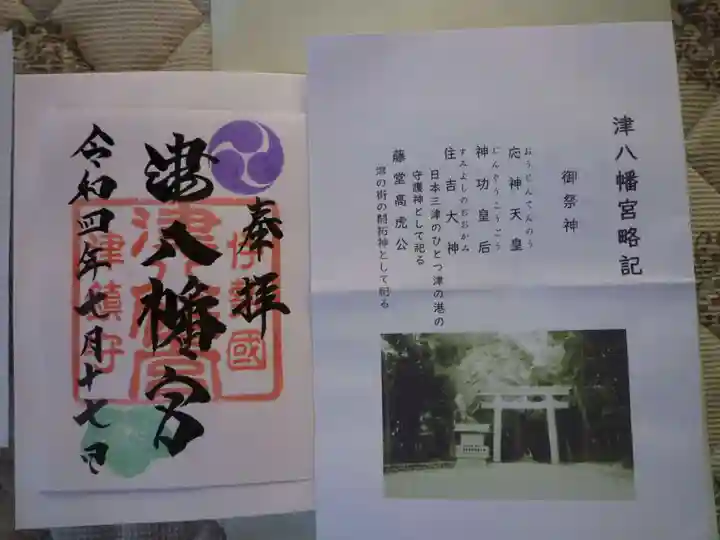 奉拝
津八幡宮
令和四年七月十七日
伊勢國
津八幡宮
津鎮守
津八幡宮略記
御祭神
おうじんてんのう
応神天皇
じんぐうこうごう
神功皇后
すみよしのおおかみ
住吉大神
日本三津のひとつ津の港の
守護神として祀る
藤堂高虎公
津の街の開拓神として祀る